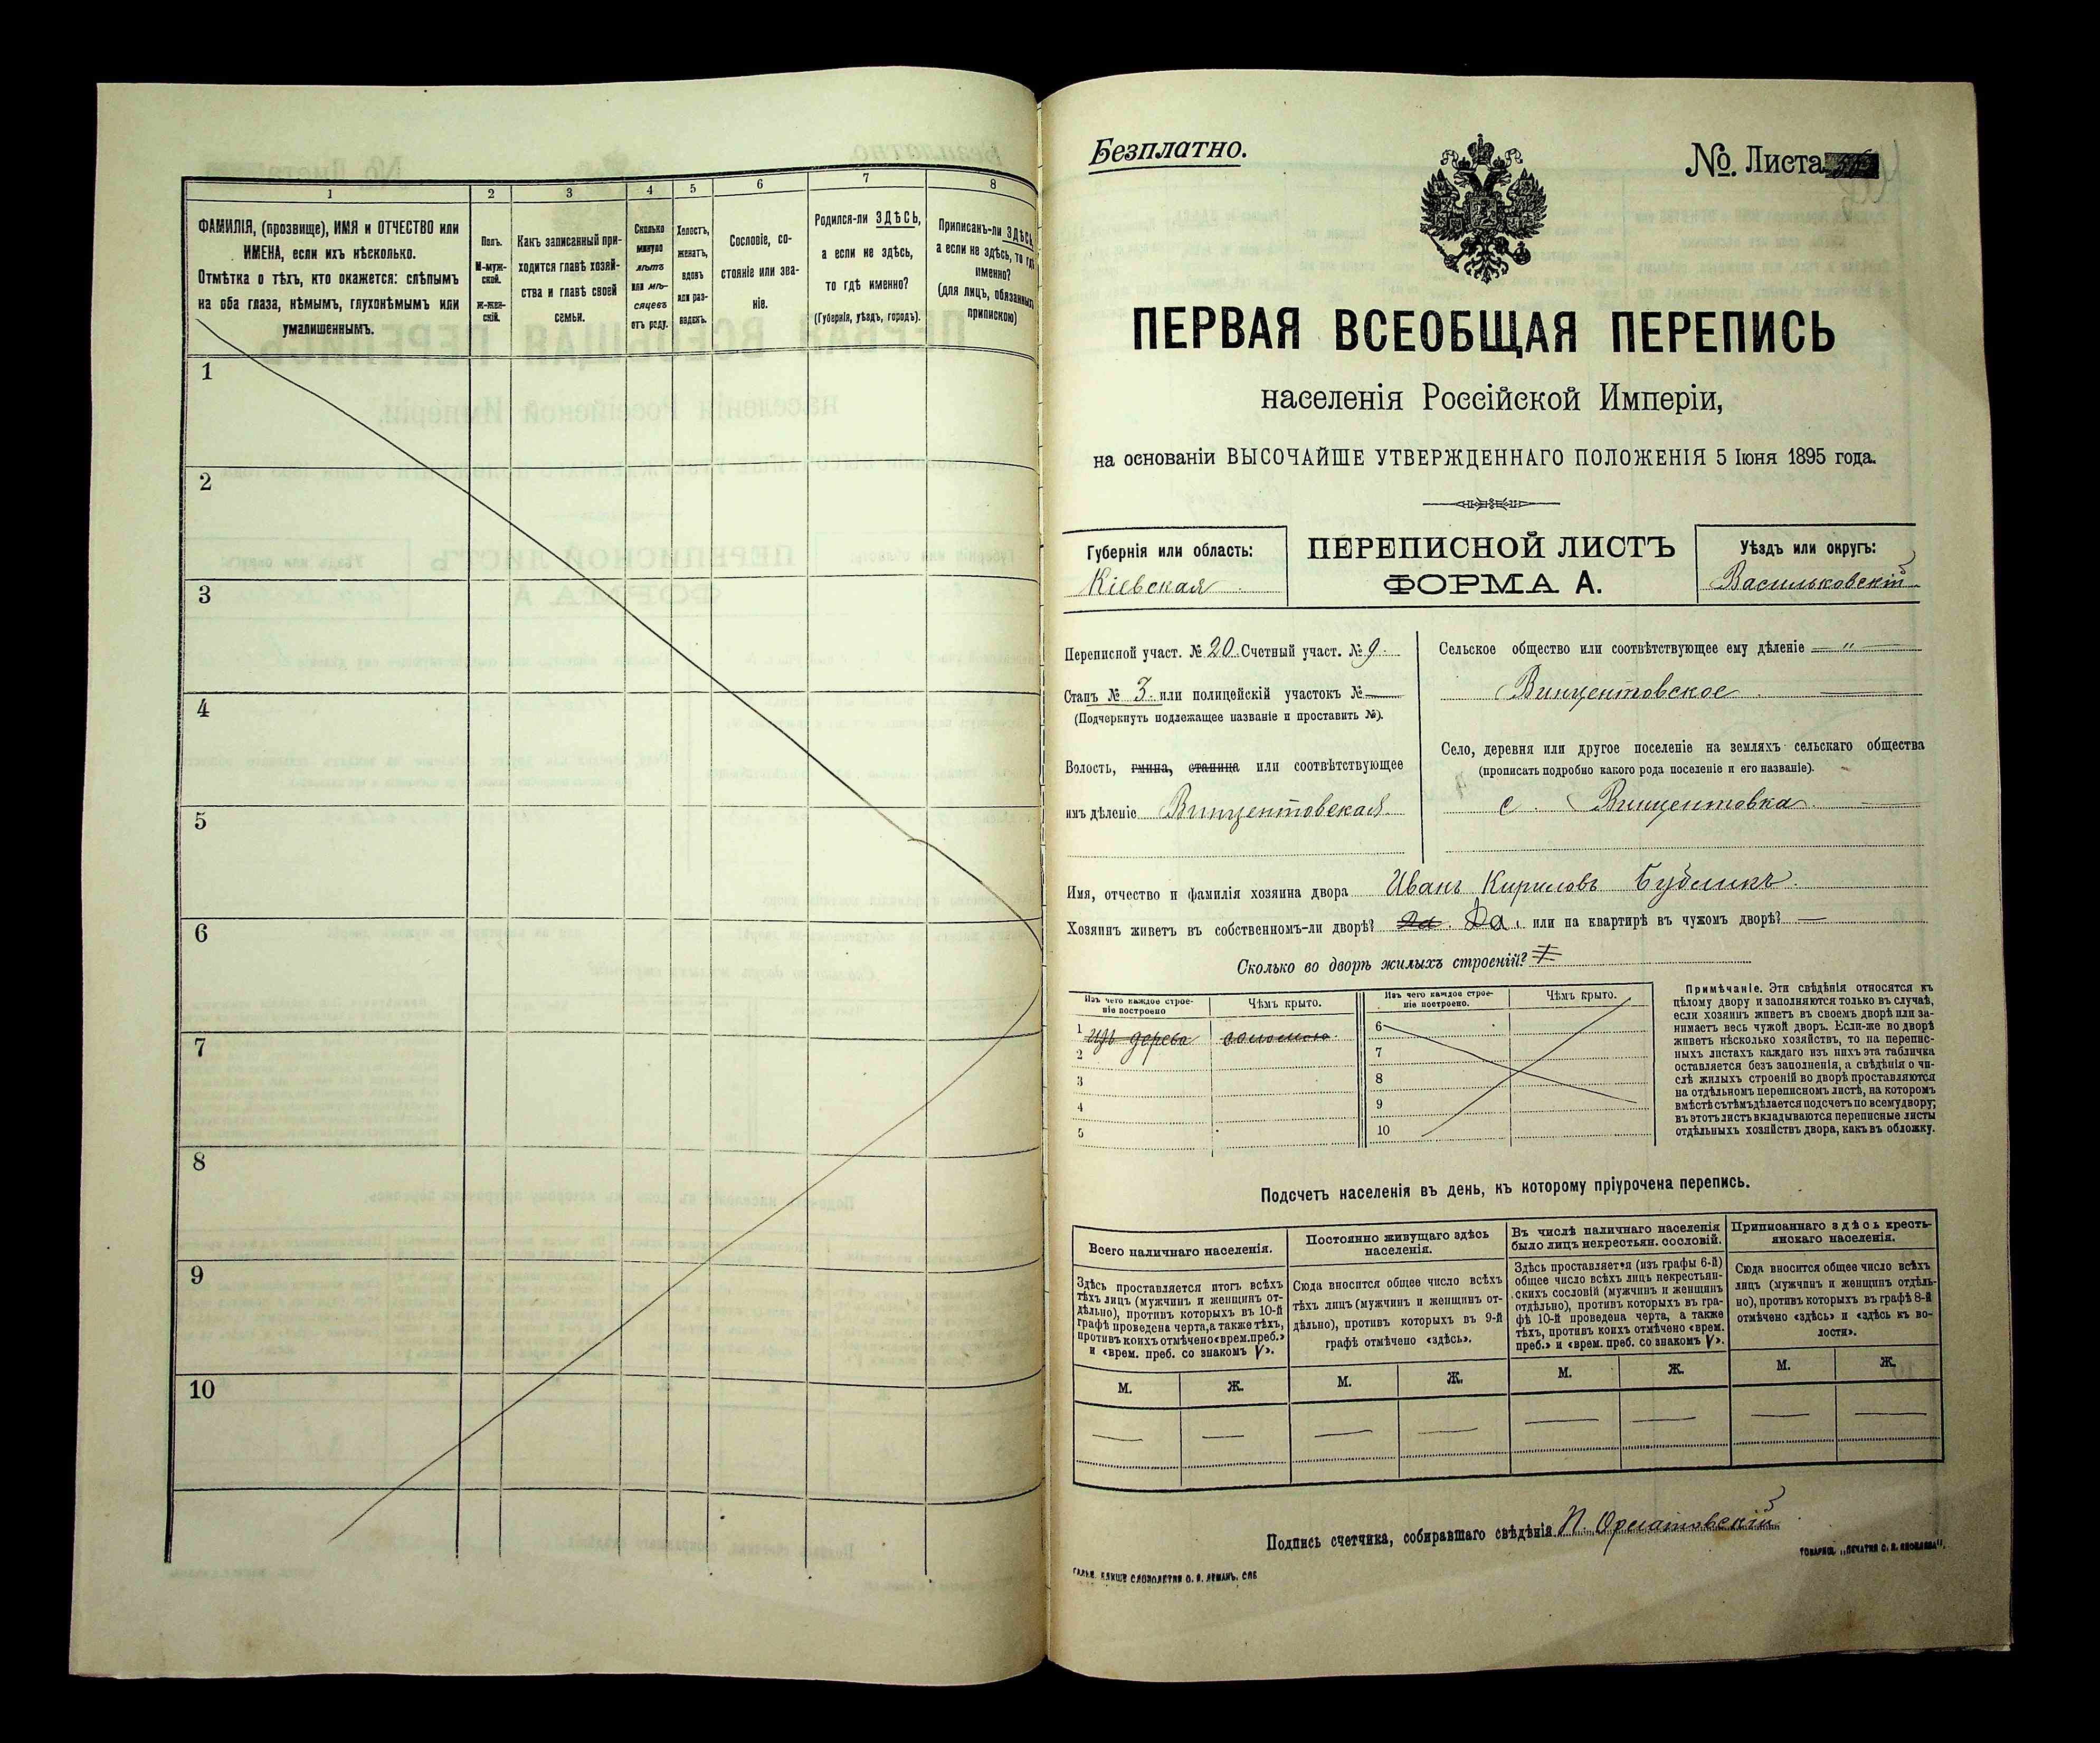 1
2
3
4
5
6
7
8
ФАМИЛІЯ, (прозвище), ИМЯ и ОТЧЕСТВО или
ИМЕНА, если ихъ нѣсколько.
Отмѣтка о тѣхъ, кто окажется: слѣпымъ
на оба глаза, нѣмымъ, глухонѣмымъ или
умалишеннымъ.
Полъ.
М-муж-
ской.
Ж-жен-
скій.
Какъ записанный при-
ходится главѣ хозяй-
ства и главѣ своей
семьи.
Сколько
минуло
лѣтъ
или мѣ-
сяцевъ
отъ роду.
Холостъ,
женатъ,
вдовъ
или раз-
веденъ.
Сословіе, со-
стояніе или зва-
ніе.
Родился-ли ЗДѢСЬ,
а если не здѣсь,
то гдѣ именно?
(Губернія, уѣздъ, городъ).
Приписанъ-ли ЗДѢСЬ,
а если не здѣсь, то гдѣ
именно?
(для лицъ, обязанныхъ
припискою)
1
2
3
4
5
6
7
8
9
10
Безплатно.
№. Листа
ПЕРВАЯ ВСЕОБЩАЯ ПЕРЕПИСЬ
населенія Россійской Имперіи,
на основаніи ВЫСОЧАЙШЕ УТВЕРЖДЕННАГО ПОЛОЖЕНІЯ 5 Іюня 1895 года.
Губернія или область:
Кіевская
ПЕРЕПИСНОЙ ЛИСТЪ
ФОРМА А.
Уѣздъ или округъ:
Васильковскій
Переписной участ. № 20. Счетный участ. № 9.
Станъ № 3. или полицейскій участокъ № —
(Подчеркнуть подлежащее названіе и проставить №).
Волость, гмина, станица или соотвѣтствующее
имъ дѣленіе Винцентовская
Сельское общество или соотвѣтствующее ему дѣленіе — " —
Винцентовское
Село, деревня или другое поселеніе на земляхъ сельскаго общества
(прописать подробно какого рода поселеніе и его названіе).
с. Винцентовка
Имя, отчество и фамилія хозяина двора Иванъ Кириловъ Бубликъ.
Хозяинъ живетъ въ собственномъ-ли дворѣ? Да. Да. или на квартирѣ въ чужомъ дворѣ? —
Сколько во дворѣ жилыхъ строеній?
Изъ чего каждое строе-
ніе построено
Чѣмъ крыто.
Изъ чего каждое строе-
ніе построено.
Чѣмъ крыто.
1 изъ дерева соломою
2
3
4
5
6
7
8
9
10
Примѣчаніе. Эти свѣдѣнія относятся къ
цѣлому двору и заполняются только въ случаѣ,
если хозяинъ живетъ въ своемъ дворѣ или за-
нимаетъ весь чужой дворъ. Если-же во дворѣ
живетъ нѣсколько хозяйствъ, то на перепис-
ныхъ листахъ каждаго изъ нихъ эта табличка
оставляется безъ заполненія, а свѣдѣнія о чи-
слѣ жилыхъ строеній во дворѣ проставляются
на отдѣльномъ переписномъ листѣ, на которомъ
вмѣстѣ съ тѣмъ дѣлается подсчетъ по всему двору;
въ этотъ листъ вкладываются переписные листы
отдѣльныхъ хозяйствъ двора, какъ въ обложку.
Подсчетъ населенія въ день, къ которому пріурочена перепись.
Всего наличнаго населенія.
Постоянно живущаго здѣсь
населенія.
Въ числѣ наличнаго населенія
было лицъ некрестьян. сословій.
Приписаннаго здѣсь кресть-
янскаго населенія.
Здѣсь проставляется итогъ всѣхъ
тѣхъ лицъ (мужчинъ и женщинъ от-
дѣльно), противъ которыхъ въ 10-й
графѣ проведена черта, а также тѣхъ,
противъ коихъ отмѣчено «врем. преб.»
и «врем. преб. со знакомъ V».
Сюда вносится общее число всѣхъ
тѣхъ лицъ (мужчинъ и женщинъ от-
дѣльно), противъ которыхъ въ 9-й
графѣ отмѣчено «здѣсь».
Здѣсь проставляется (изъ графы 6-й)
общее число всѣхъ лицъ некрестьян-
скихъ сословій (мужчинъ и женщинъ
отдѣльно), противъ которыхъ въ гра-
фѣ 10-й проведена черта, а также
тѣхъ, противъ коихъ отмѣчено «врем.
преб.» и «врем. преб. со знакомъ V».
Сюда вносится общее число всѣхъ
лицъ (мужчинъ и женщинъ отдѣль-
но), противъ которыхъ въ графѣ 8-й
отмѣчено «здѣсь» и «здѣсь къ во-
лости».
М. Ж. М. Ж. М. Ж. М. Ж.
— — — — — — — —
Подпись счетчика, собиравшаго свѣдѣнія
КЛИШЕ СЛОВОЛИТНИ О. И. ЛЕМАНЪ. СПБ
ТОВАРИЩ. „ПЕЧАТНЯ С. П. ЯКОВЛЕВА".